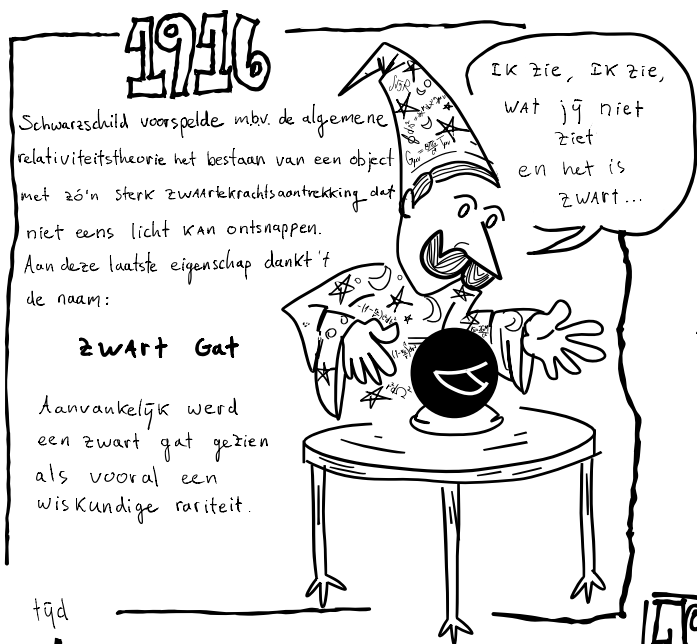 1916
Schwarzschild voorspelde m.b.v. de algemene
relativiteitstheorie het bestaan van een object
met zó'n sterk zwaartekrachtsaantrekking dat
niet eens licht kan ontsnappen.
Aan deze laatste eigenschap dankt 't
de naam:
Zwart Gat
Aanvankelijk werd
een zwart gat gezien
als vooral een
wiskundige rariteit.
Ik zie, Ik zie,
wat jij niet
ziet
en het is
zwart...
tijd